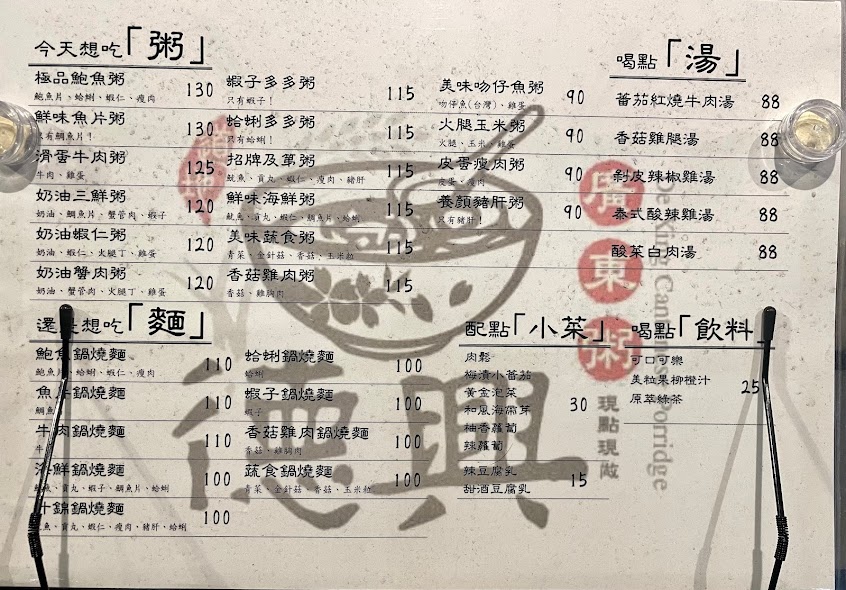 今天想吃「粥」
極品鮑魚粥 130
鮑魚片、蛤蜊、蝦仁、瘦肉
鮮味魚片粥 130
只有鯛魚片！
滑蛋牛肉粥 125
牛肉、雞蛋
奶油三鮮粥 120
奶油、鯛魚片、蟹管肉、蝦子
奶油蝦仁粥 120
奶油、蝦仁、火腿丁、雞蛋
奶油蟹肉粥 120
奶油、蟹管肉、火腿丁、雞蛋
蝦子多多粥 115
只有蝦子！
蛤蜊多多粥 115
只有蛤蜊！
招牌及第粥 115
魷魚、貢丸、蝦仁、瘦肉、豬肝
鮮味海鮮粥 115
魷魚、貢丸、蝦仁、鯛魚片、蛤蜊
美味蔬食粥 115
青菜、金針菇、香菇、玉米粒
香菇雞肉粥 115
香菇、雞胸肉
美味吻仔魚粥 90
吻仔魚(台灣)、雞蛋
火腿玉米粥 90
火腿、玉米、雞蛋
皮蛋瘦肉粥 90
皮蛋、瘦肉
養顏豬肝粥 90
只有豬肝！
喝點「湯」
蕃茄紅燒牛肉湯 88
香菇雞腿湯 88
剝皮辣椒雞湯 88
泰式酸辣雞湯 88
酸菜白肉湯 88
還是想吃「麵」
鮑魚鍋燒麵 110
鮑魚片、蛤蜊、蝦仁、瘦肉
魚片鍋燒麵 110
鯛魚
牛肉鍋燒麵 110
牛
海鮮鍋燒麵 100
魷魚、貢丸、蝦子、鯛魚片、蛤蜊
什錦鍋燒麵 100
魚、貢丸、蝦仁、瘦肉、豬肝、蛤蜊
蛤蜊鍋燒麵 100
蛤蜊
蝦子鍋燒麵 100
蝦子
香菇雞肉鍋燒麵 100
香菇、雞胸肉
蔬食鍋燒麵 100
青菜、金針菇、香菇、玉米粒
配點「小菜」
肉鬆
梅漬小蕃茄
黃金泡菜
和風海腐芽 30
柚香蘿蔔
辣蘿蔔
辣豆腐乳
甜酒豆腐乳 15
喝點「飲料」
可口可樂
美粒果柳橙汁 25
原萃綠茶
德興
廣東粥
現點現做
De Xing Cantonese Porridge